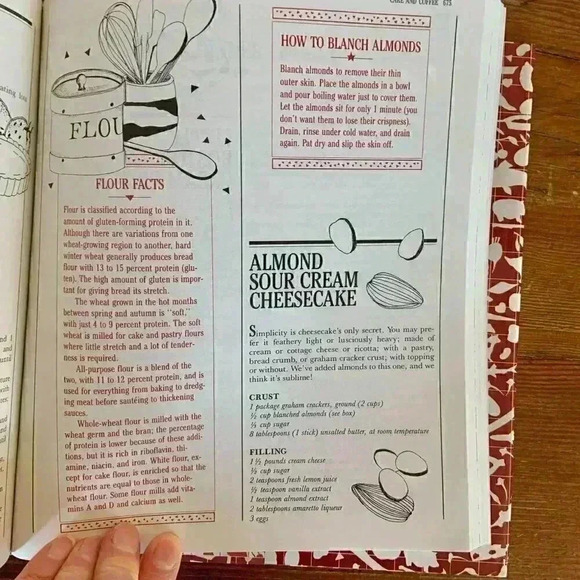 CAKE AND COFFEE 675
FLOU
FLOUR FACTS
Flour is classified according to the
amount of gluten-forming protein in it.
Although there are variations from one
wheat-growing region to another, hard
winter wheat generally produces bread
flour with 13 to 15 percent protein (glu-
ten). The high amount of gluten is impor-
tant for giving bread its stretch.
The wheat grown in the hot months
between spring and autumn is "soft,"
with just 4 to 9 percent protein. The soft
wheat is milled for cake and pastry flours
where little stretch and a lot of tender-
ness is required.
All-purpose flour is a blend of the
two, with 11 to 12 percent protein, and is
used for everything from baking to dredg-
ing meat before sautéing to thickening
sauces.
Whole-wheat flour is milled with the
wheat germ and the bran; the percentage
of protein is lower because of these addi-
tions, but it is rich in riboflavin, thi-
amine, niacin, and iron. White flour, ex-
cept for cake flour, is enriched so that the
nutrients are equal to those in whole-
wheat flour. Some flour mills add vita-
mins A and D and calcium as well.
HOW TO BLANCH ALMONDS
Blanch almonds to remove their thin
outer skin. Place the almonds in a bowl
and pour boiling water just to cover them.
Let the almonds sit for only 1 minute (you
don't want them to lose their crispness).
Drain, rinse under cold water, and drain
again. Pat dry and slip the skin off.
ALMOND
SOUR CREAM
CHEESECAKE
Simplicity is cheesecake's only secret. You may pre-
fer it feathery light or lusciously heavy; made of
cream or cottage cheese or ricotta; with a pastry,
bread crumb, or graham cracker crust; with topping
or without. We've added almonds to this one, and we
think it's sublime!
CRUST
1 package graham crackers, ground (2 cups)
½ cup blanched almonds (see box)
cup sugar
8 tablespoons (1 stick) unsalted butter, at room temperature
FILLING
1 ½ pounds cream cheese
cup sugar
2 teaspoons fresh lemon juice
teaspoon vanilla extract
1 teaspoon almond extract
2 tablespoons amaretto liqueur
3 eggs